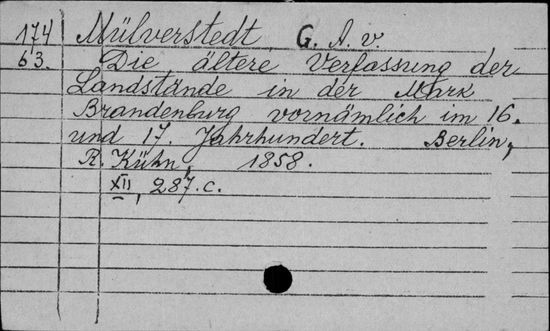 174 Mülverstedt, G. A. v.
63. Die ältere Verfassung der
Landstände in der Mark
Brandenburg vornämlich im 16.
und 17. Jahrhundert. Berlin,
R. Kühn, 1858.
XII, 287 c.